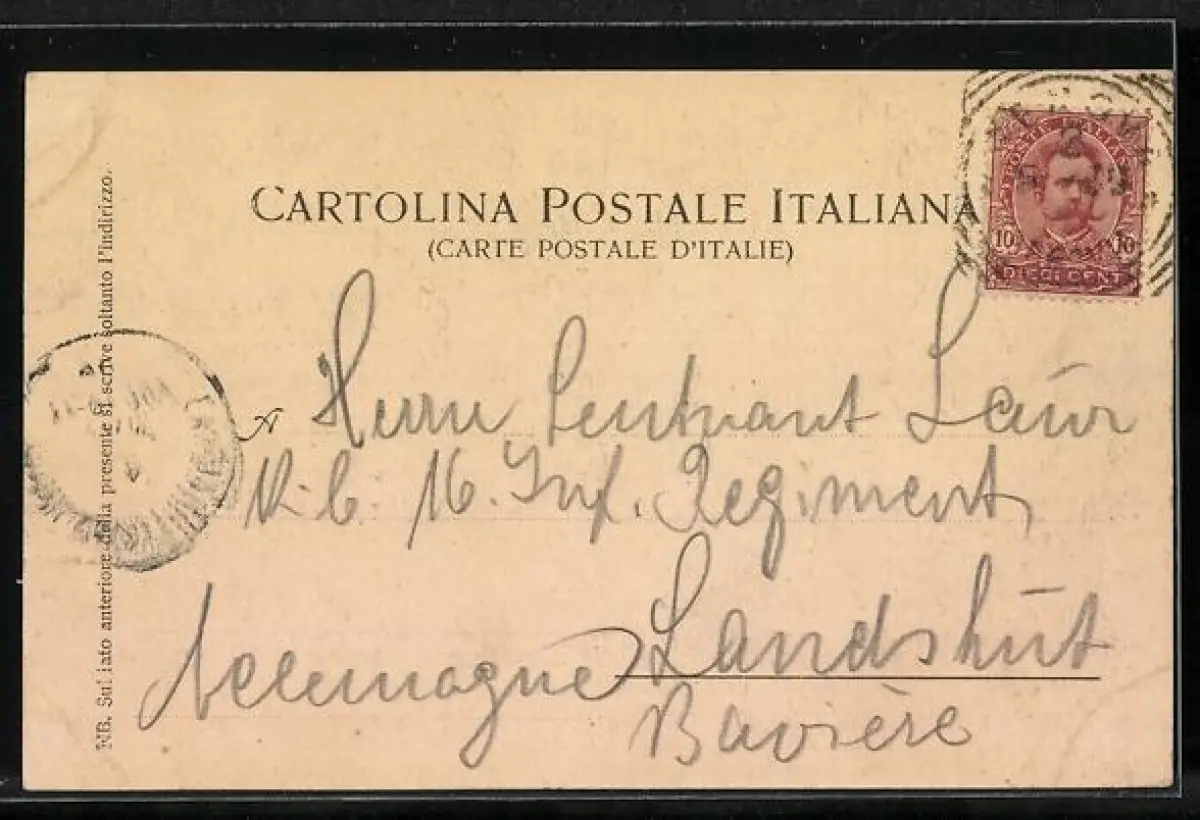 CARTOLINA POSTALE ITALIANA
(CARTE POSTALE D'ITALIE)
POSTE ITALIANE
10 10
DIECI CENT
NB. Sul lato anteriore della presente si scrive soltanto l'indirizzo.
A Herrn Leutnant
16. Inf. Regiment
Landshut
Allemagne
Bavière